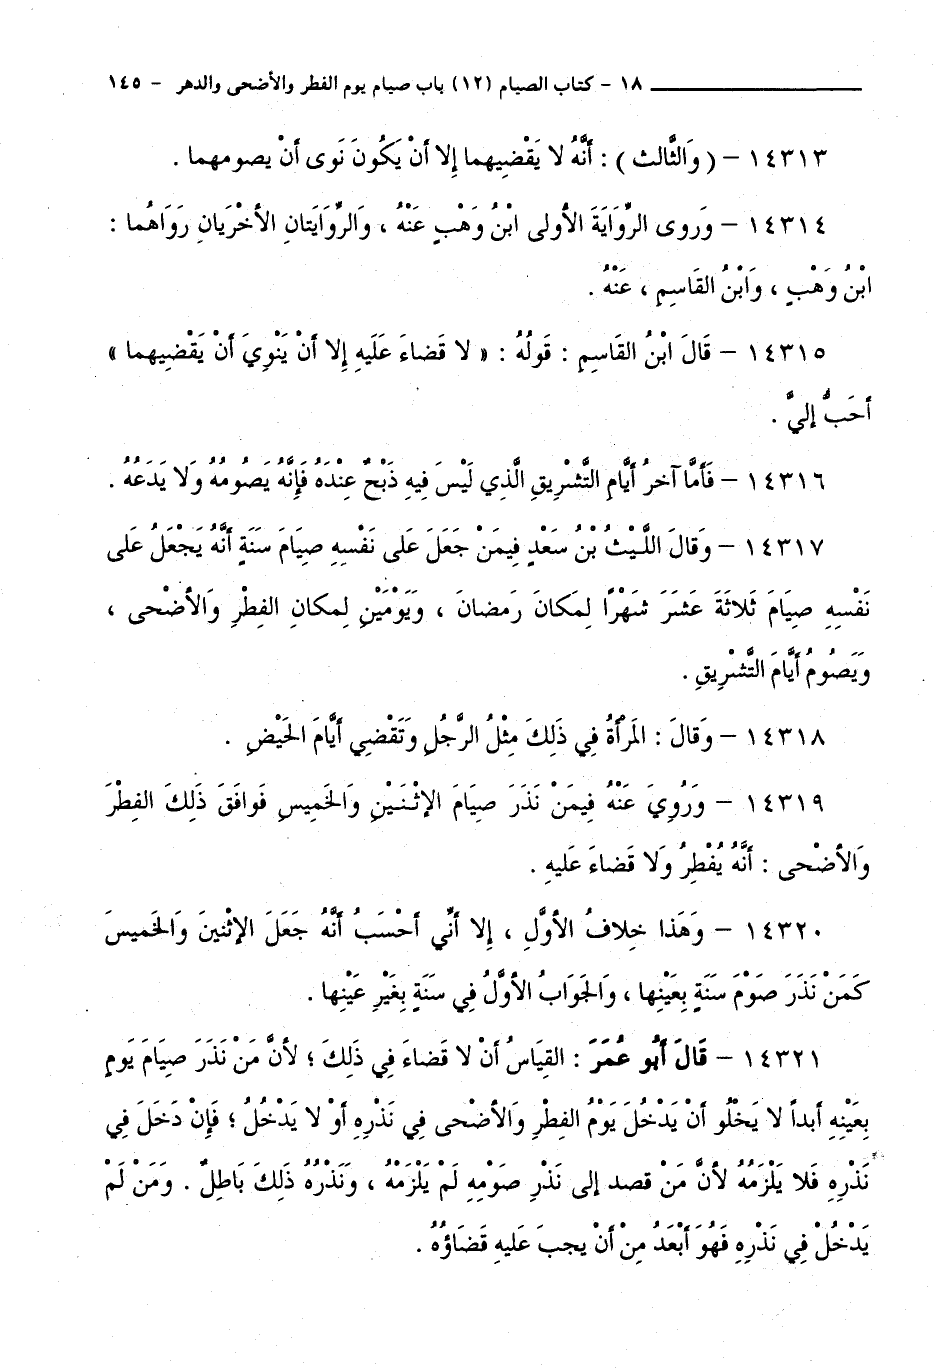 ١٨ - كتاب الصيام (١٢) باب صيام يوم الفطر والأضحى والدهر - ١٤٥
١٤٣١٣ - ( وَالثَّالث ) : أَنَّهُ لا يَقْضِيهما إِلا أَنْ يَكُونَ نَوى أَنْ يصومهما .
١٤٣١٤ - وَروى الرِّوَايَةَ الأولى ابْنُ وَهْبٍ عَنْهُ ، وَالرِّوَايَتانِ الأخْريَانِ رَوَاهُما :
ابْنُ وَهْبٍ ، وَابْنُ القَاسِمِ ، عَنْهُ .
١٤٣١٥ - قَالَ ابْنُ القَاسِمِ : قَولُهُ : « لا قَضاءَ عَلَيهِ إِلا أَنْ يَنْوِيَ أَنْ يَقْضِيهما »
أَحَبُّ إِليَّ .
١٤٣١٦ - فَأَمَّا آخرُ أَيَّامِ التَّشْرِيقِ الَّذِي لَيْسَ فِيهِ ذَبْحٌ عِنْدَهُ فَإِنَّهُ يَصُومُهُ وَلا يَدَعُهُ .
١٤٣١٧ - وَقالَ اللَّيْثُ بْنُ سَعْدٍ فِيمَنْ جَعَلَ عَلى نَفْسِهِ صِيَامَ سَنَةٍ أَنَّهُ يَجْعَلُ عَلى
نَفْسِهِ صِيَامَ ثَلاثَةَ عَشَرَ شَهْرًا لِمَكانَ رَمَضانَ ، وَيَوْمَيْنِ لِمكانِ الفِطْرِ وَالأَضْحى ،
وَيَصُومُ أَيَّامَ التَّشْرِيقِ .
١٤٣١٨ - وَقَالَ : المَرْأَةُ فِي ذَلِكَ مِثْلُ الرَّجُلِ وَتَقْضِي أَيَّامَ الحَيْضِ .
١٤٣١٩ - وَرُوِيَ عَنْهُ فِيمَنْ نَذَرَ صِيَامَ الإِثْنَيْنِ وَالخَمِيسِ فَوافَقَ ذَلِكَ الفِطْرَ
وَالأَضْحى : أَنَّهُ يُفْطِرُ وَلا قَضاءَ عَلَيهِ .
١٤٣٢٠ - وَهَذا خِلافُ الأَوَّلِ ، إِلا أَنِّي أَحْسَبُ أَنَّهُ جَعَلَ الإِثْنينَ وَالخَميسَ
كَمَنْ نَذَرَ صَوْمَ سَنَةٍ بِعَيْنِها ، وَالجَوَابُ الأَوَّلُ فِي سَنَةٍ بِغَيْرِ عَيْنِها .
١٤٣٢١ - قَالَ أَبُو عُمَرَ : القِيَاسُ أَنْ لا قَضاءَ فِي ذَلِكَ ؛ لأَنَّ مَنْ نَذَرَ صِيَامَ يَومٍ
بِعَيْنِهِ أَبداً لا يَخْلُو أَنْ يَدْخُلَ يَوْمُ الفِطْرِ وَالأَضْحى فِي نَذْرِهِ أَوْ لا يَدْخُلُ ؛ فَإِنْ دَخَلَ فِي
نَذْرِهِ فَلا يَلْزَمُهُ لأَنَّ مَنْ قصد إلى نَذْرِ صَومِهِ لَمْ يَلْزَمْهُ ، وَنَذْرُهُ ذَلِكَ بَاطِلٌ . وَمَنْ لَمْ
يَدْخُلْ فِي نَذْرِهِ فَهُوَ أَبْعَدُ مِنْ أَنْ يجبَ عَليهِ قَضَاؤُهُ .